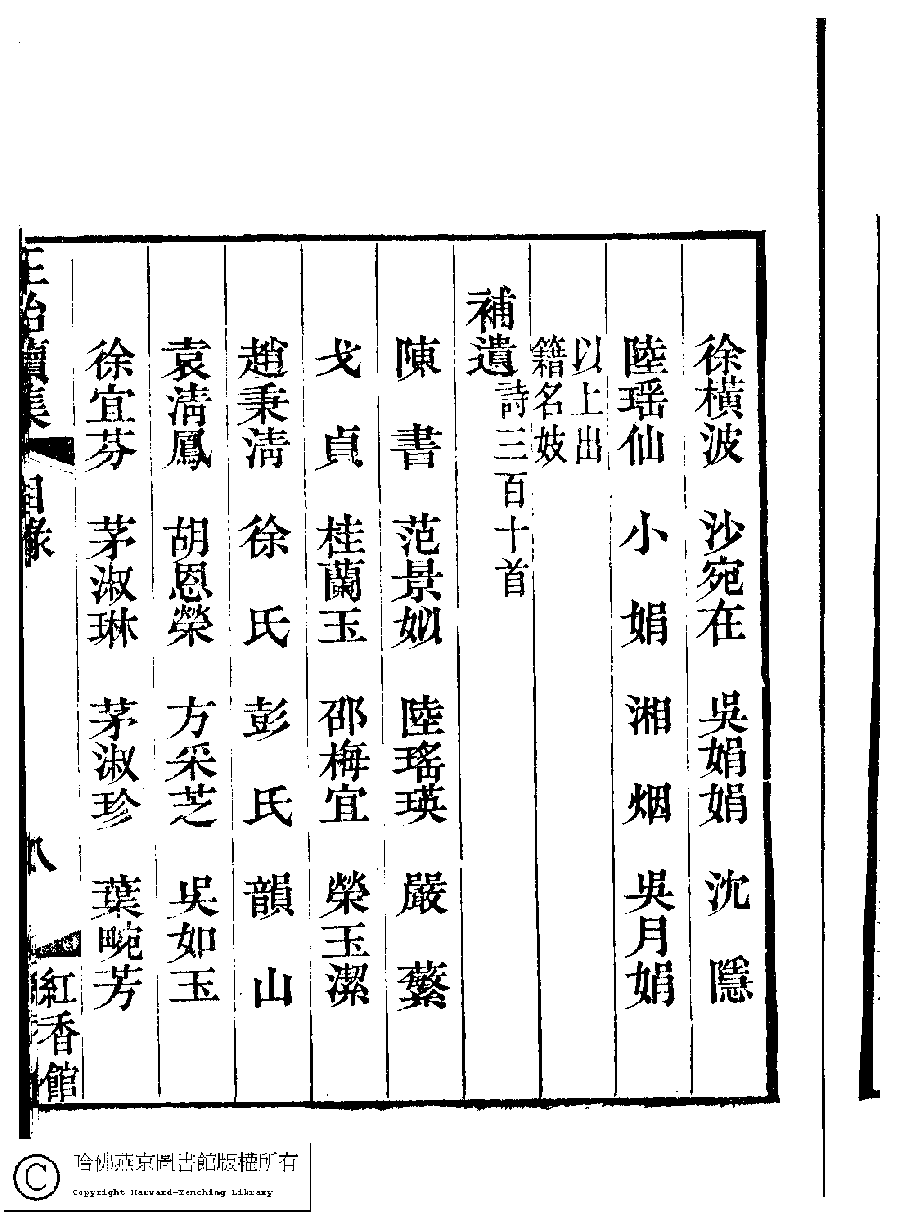 徐橫波　沙宛在　吳娟娟　沈　隱
陸瑶仙　小　娟　湘　烟　吳月娟
以上出
籍名妓
補遺詩三百十首
陳　書　范景姒　陸瑤瑛　嚴　蘩
戈　貞　桂蘭玉　邵梅宜　榮玉潔
趙秉清　徐　氏　彭　氏　韻　山
袁淸鳳　胡恩榮　方采芝　吳如玉
徐宜芬　茅淑琳　茅淑珍　葉畹芳
正始續集　目錄　八
紅香館
哈佛燕京圖書館版權所有
Copyright Harvard-Yenching Library